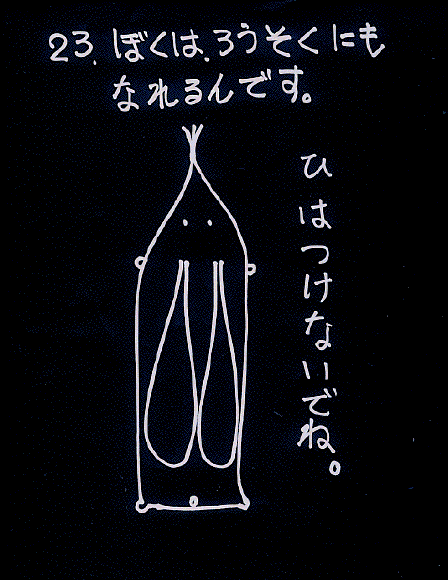 23. ぼくは、ろうそくにも
なれるんです。
ひはつけないでね。